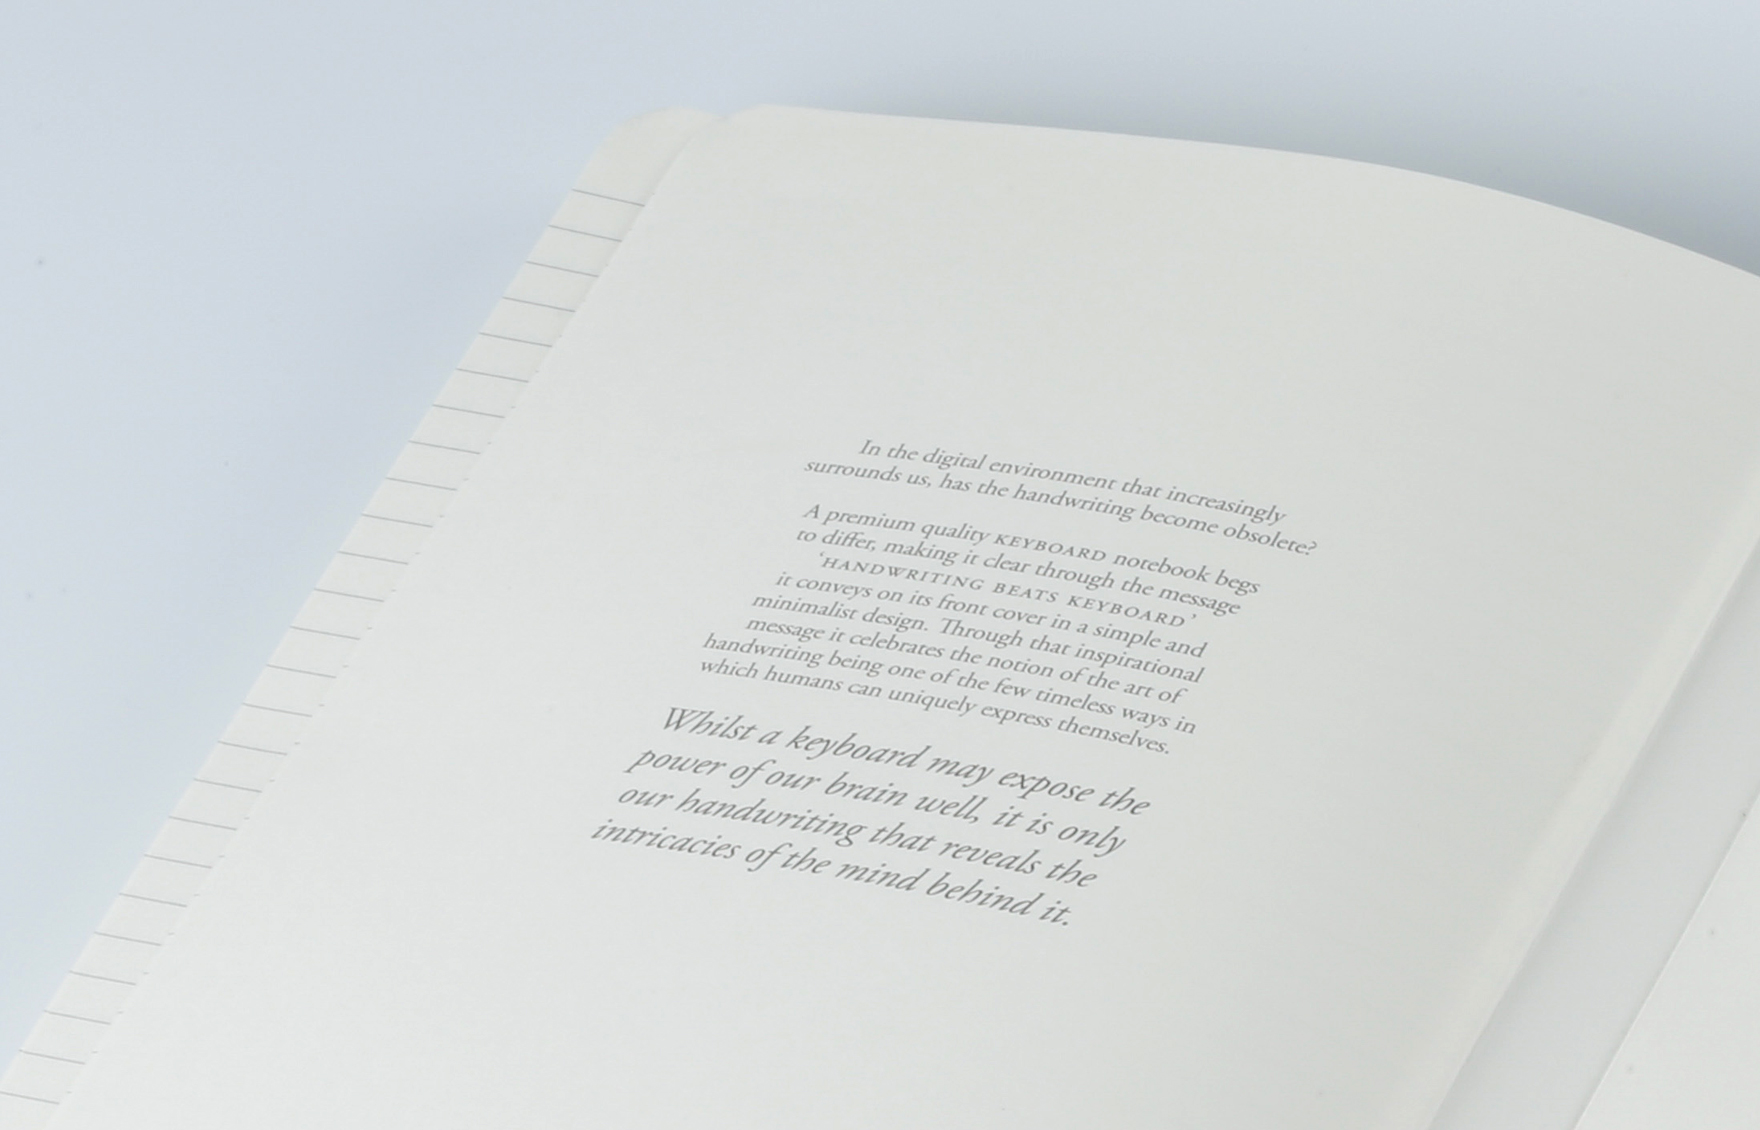 In the digital environment that increasingly
surrounds us, has the handwriting become obsolete?
A premium quality KEYBOARD notebook begs
to differ, making it clear through the message
‘HANDWRITING BEATS KEYBOARD’
it conveys on its front cover in a simple and
minimalist design. Through that inspirational
message it celebrates the notion of the art of
handwriting being one of the few timeless ways in
which humans can uniquely express themselves.
Whilst a keyboard may expose the
power of our brain well, it is only
our handwriting that reveals the
intricacies of the mind behind it.